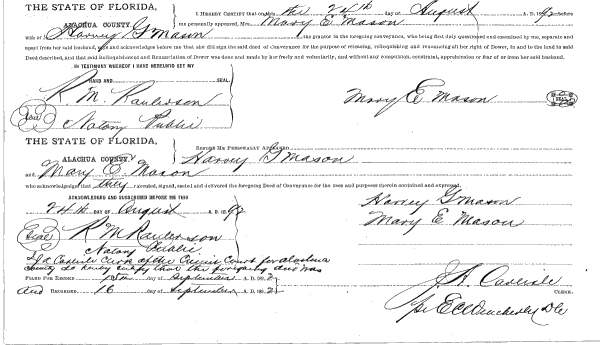 THE STATE OF FLORIDA,
ALACHUA COUNTY.
I HEREBY CERTIFY that on this the 24th day of August A. D. 1892 before
me personally appeared, Mrs. Mary E Mason
wife of Harvey G Mason the grantor in the foregoing conveyance, who being first duly questioned and examined by me, separate and
apart from her said husband, and acknowledges before me that she did sign the said deed of Conveyance for the purpose of releasing, relinquishing and renouncing all her right of Dower, in and to the land in said
Deed described, and that said Relinquishment and Renunciation of Dower was done and made by her freely and voluntarily, and without any compulsion, constraint, apprehension or fear of or from her said husband.
IN TESTIMONY WHEREOF I HAVE HEREUNTO SET MY
HAND AND SEAL.
R. M. Raulerson
Mary E Mason
SEAL
Seal
Notary Public
THE STATE OF FLORIDA,
ALACHUA COUNTY.
BEFORE ME PERSONALLY APPEARED
Harvey G Mason
and Mary E. Mason
who acknowledged that they executed, signed, sealed and delivered the foregoing Deed of Conveyance for the uses and purposes therein contained and expressed.
ACKNOWLEDGED AND SUBSCRIBED BEFORE ME THIS
24th DAY OF August A. D. 1892
Harvey G Mason
Mary E Mason
Seal
R M Raulerson
Notary Public
Clerk of the Circuit Court for Alachua
County do hereby certify that the foregoing deed was
FILED FOR RECORD day of September A. D. 1892
and RECORDED 16 day of September A. D. 1892
J. A. Carlisle
CLERK.
per